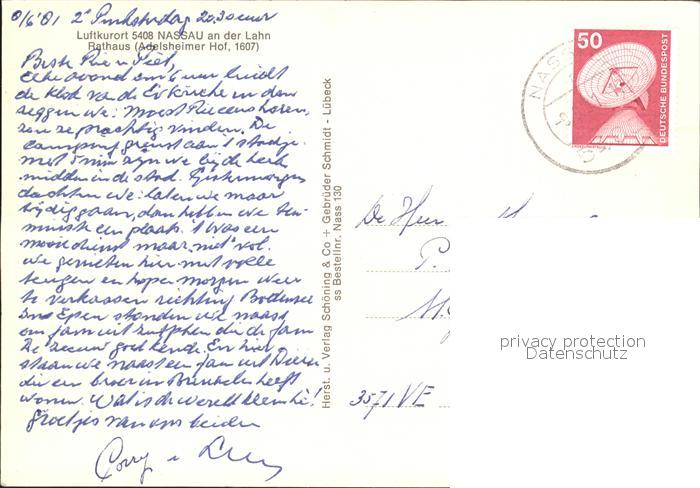 8/6'81 2e Pinksterdag 20.30 uur
Luftkurort 5408 NASSAU an der Lahn
Rathaus (Adelsheimer Hof, 1607)
Beste Rie en Piet,
Elke avond om 6 uur luidt
de klok van de Ev kirche en dan
zeggen we: moest Rie eens horen,
zou ze prachtig vinden. De
camping grenst aan 't stadje.
met 5 min zijn we bij de kerk
midden in de stad. Gistermorgen
dachten we: laten we maar
tijdig gaan, dan hebben we ten-
minste een plaats. 't Was een
mooie dienst maar niet vol.
We genieten hier met volle
teugen en hopen morgen weer
te verkassen richting Bodensee
In Epen stonden we naast
een fam uit Zutphen die de fam
de Zeeuw goed kende. En hier
staan we naast een fam uit Dieren
die een broer in Brunssum heeft
wonen. Wat is de wereld klein hè!
Groetjes van ons beiden
Corry en
Herst. u. Verlag Schöning & Co + Gebrüder Schmidt - Lübeck
ss Bestellnr. Nass 130
NASS
50
DEUTSCHE BUNDESPOST
De Heer
P.
3571 VE
privacy protection
Datenschutz